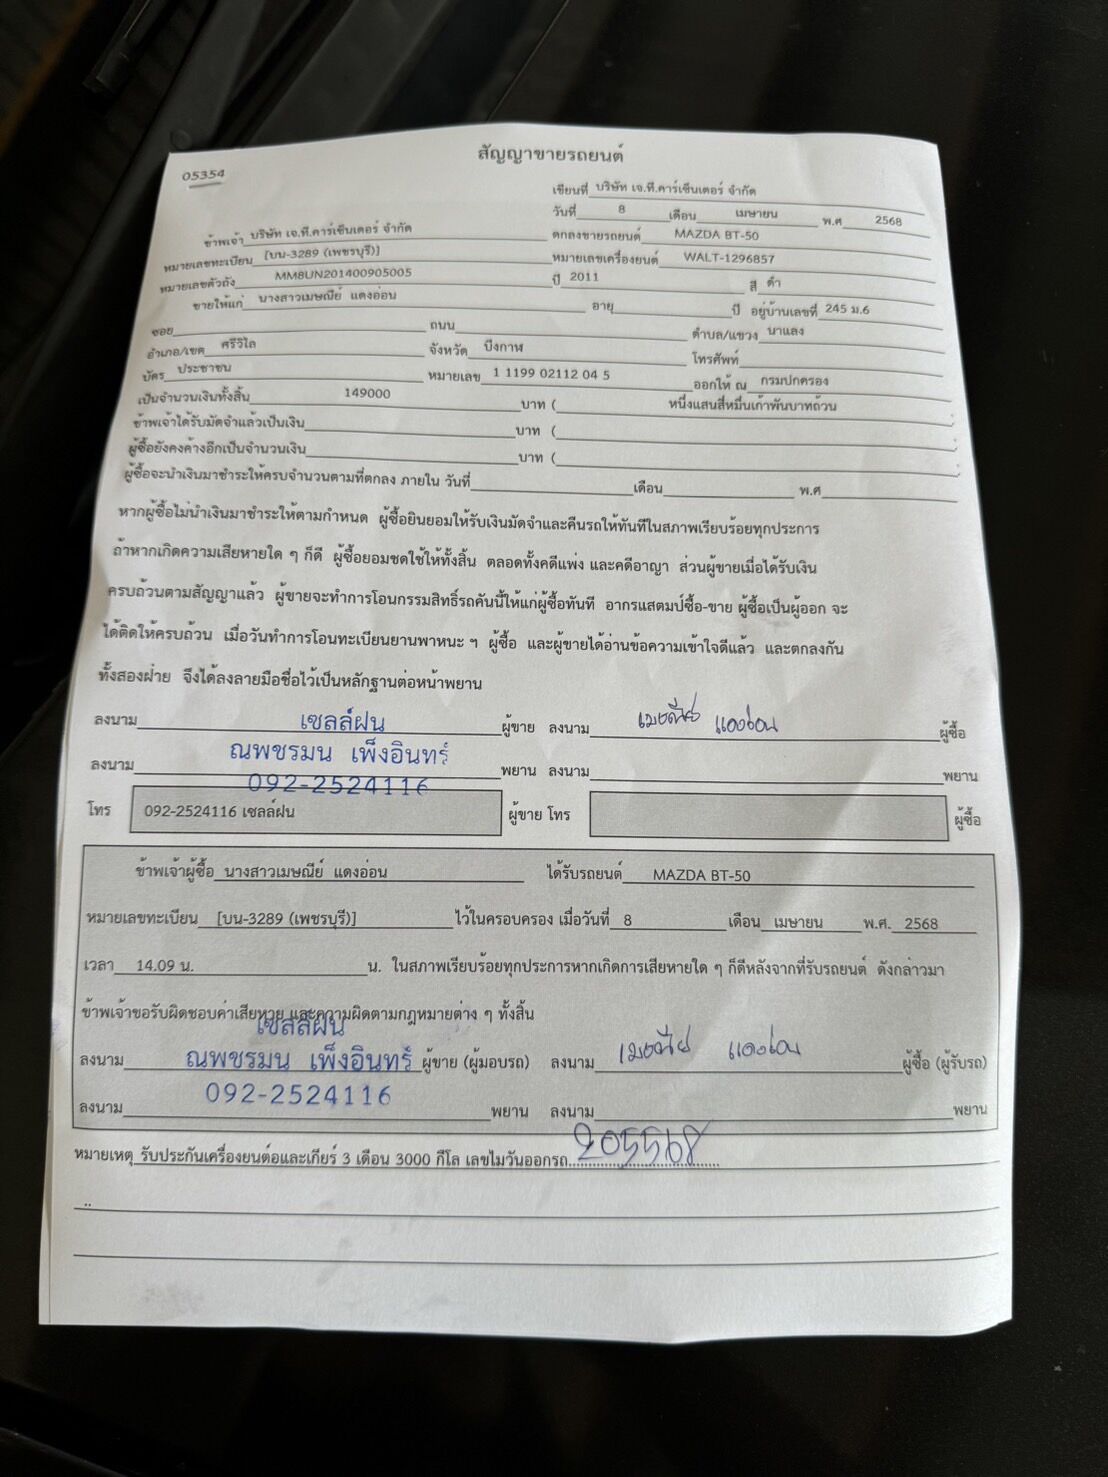 สัญญาขายรถยนต์
05354
เขียนที่ บริษัท เจ.ที.คาร์เซ็นเตอร์ จำกัด
วันที่ 8 เดือน เมษายน พ.ศ 2568
ข้าพเจ้า บริษัท เจ.ที.คาร์เซ็นเตอร์ จำกัด ตกลงขายรถยนต์ MAZDA BT-50
หมายเลขทะเบียน [บน-3289 (เพชรบุรี)] หมายเลขเครื่องยนต์ WALT-1296857
หมายเลขตัวถัง MM8UN201400905005 ปี 2011 สี ดำ
ขายให้แก่ นางสาวเมษณีย์ แดงอ่อน อายุ ปี อยู่บ้านเลขที่ 245 ม.6
ซอย ถนน ตำบล/แขวง นาแสง
อำเภอ/เขต ศรีวิไล จังหวัด บึงกาฬ โทรศัพท์
บัตร ประชาชน หมายเลข 1 1199 02112 04 5 ออกให้ ณ กรมปกครอง
เป็นจำนวนเงินทั้งสิ้น 149000 บาท ( หนึ่งแสนสี่หมื่นเก้าพันบาทถ้วน
ข้าพเจ้าได้รับมัดจำแล้วเป็นเงิน บาท (
ผู้ซื้อยังคงค้างอีกเป็นจำนวนเงิน บาท (
ผู้ซื้อจะนำเงินมาชำระให้ครบจำนวนตามที่ตกลง ภายใน วันที่ เดือน พ.ศ
หากผู้ซื้อไม่นำเงินมาชำระให้ตามกำหนด ผู้ซื้อยินยอมให้รับเงินมัดจำและคืนรถให้ทันทีในสภาพเรียบร้อยทุกประการ
ถ้าหากเกิดความเสียหายใด ๆ ก็ดี ผู้ซื้อยอมชดใช้ให้ทั้งสิ้น ตลอดทั้งคดีแพ่ง และคดีอาญา ส่วนผู้ขายเมื่อได้รับเงิน
ครบถ้วนตามสัญญาแล้ว ผู้ขายจะทำการโอนกรรมสิทธิ์รถคันนี้ให้แก่ผู้ซื้อทันที อากรแสตมป์ซื้อ-ขาย ผู้ซื้อเป็นผู้ออก จะ
ได้ติดให้ครบถ้วน เมื่อวันทำการโอนทะเบียนยานพาหนะ ฯ ผู้ซื้อ และผู้ขายได้อ่านข้อความเข้าใจดีแล้ว และตกลงกัน
ทั้งสองฝ่าย จึงได้ลงลายมือชื่อไว้เป็นหลักฐานต่อหน้าพยาน
ลงนาม เซลล์ฝน ผู้ขาย ลงนาม เมษณีย์ แดงอ่อน ผู้ซื้อ
ณพชรมน เพ็งอินทร์
ลงนาม พยาน ลงนาม พยาน
092-2524116
โทร 092-2524116 เซลล์ฝน ผู้ขาย โทร ผู้ซื้อ
ข้าพเจ้าผู้ซื้อ นางสาวเมษณีย์ แดงอ่อน ได้รับรถยนต์ MAZDA BT-50
หมายเลขทะเบียน [บน-3289 (เพชรบุรี)] ไว้ในครอบครอง เมื่อวันที่ 8 เดือน เมษายน พ.ศ. 2568
เวลา 14.09 น. น. ในสภาพเรียบร้อยทุกประการหากเกิดการเสียหายใด ๆ ก็ดีหลังจากที่รับรถยนต์ ดังกล่าวมา
ข้าพเจ้าขอรับผิดชอบค่าเสียหาย และความผิดตามกฎหมายต่าง ๆ ทั้งสิ้น
เซลล์ฝน
ลงนาม ณพชรมน เพ็งอินทร์ ผู้ขาย (ผู้มอบรถ) ลงนาม เมษณีย์ แดงอ่อน ผู้ซื้อ (ผู้รับรถ)
092-2524116
ลงนาม พยาน ลงนาม พยาน
หมายเหตุ รับประกันเครื่องยนต์และเกียร์ 3 เดือน 3000 กิโล เลขไมวันออกรถ 205568
..